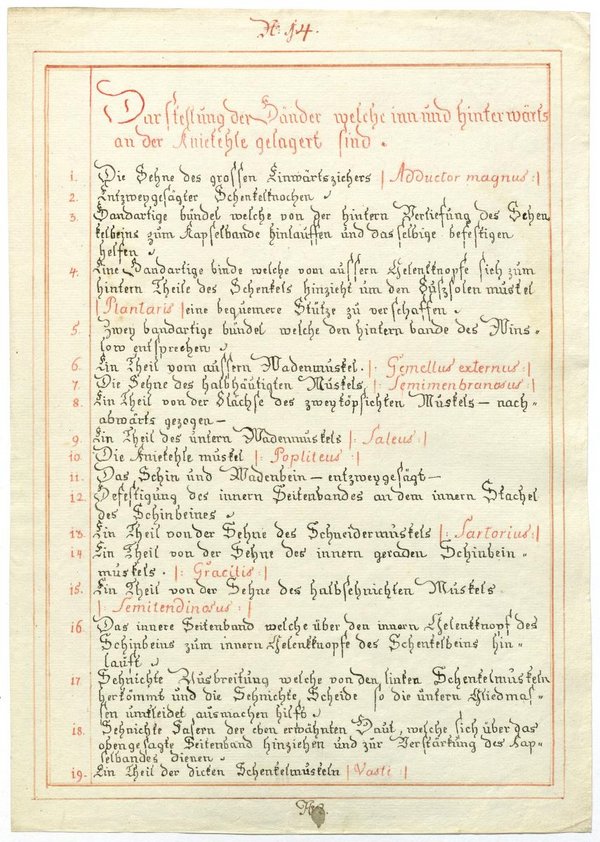 N: 14.
Darstellung der Bänder welche inn und hinterwärts
an der Kniekehle gelagert sind.
1. Die Sehne des grossen Einwärtsziehers |: Adductor magnus :|
2. Entzweygesägter Schenkelknochen
3. Bandartige bündel welche von der hintern Vertiefung des Schen
kelbeins zum Kapselbande hinlauffen und dasselbige befestigen
helfen
4. Eine Bandartige binde welche vom äussern Gelenkknopfe sich zum
hintern Theile des Schenkels hinzieht um den Füszsolen muskel
|: Plantaris :| eine bequemere Stütze zu verschaffen
5. Zwey bandartige bündel welche den hintern bande des Wins=
low entsprechen
6. Ein Theil vom äussern Wadenmuskel. |: Gemellus externus :|
7. Die Sehne des halbhäutigten Muskels |: Semimenbranosus :|
8. Ein Theil von der Flächse des zweyköpfichten Muskels — nach=
abwärts gezogen —
9. Ein Theil des untern Wadenmuskels |: Saleus :|
10. Die Kniekehle muskel |: Popliteus :|
11. Das Schin und Wadenbein — entzweygesägt —
12. Befestigung des innern Seitenbandes an dem innern Stachel
des Schinbeines
13. Ein Theil von der Sehne des Schneidermuskels |: Sartorius :|
14. Ein Theil von der Sehne des innern geraden Schinbein=
muskels. |: Gracilis :|
15. Ein Theil von der Sehne des halbsehnichten Muskels
|: Semitendinosus :|
16. Das innere Seitenband welche über den innern Gelenkknopf des
Schinbeins zum innern Gelenkknopfe des Schenkelbeins hin=
lauft
17. Sehnichte Ausbreitung welche von den linken Schenkelmuskeln
herkömmt und die Sehnichte Scheide so die untern Gliedmas=
sen umkleidet ausmachen hilft
18. Sehnichte Fasern der eben erwähnten Haut, welche sich über das
obengesagte Seitenband hinziehen und zur Verstärkung des Kap=
selbandes dienen
19. Ein Theil der dicken Schenkelmuskeln |: Vasti :|